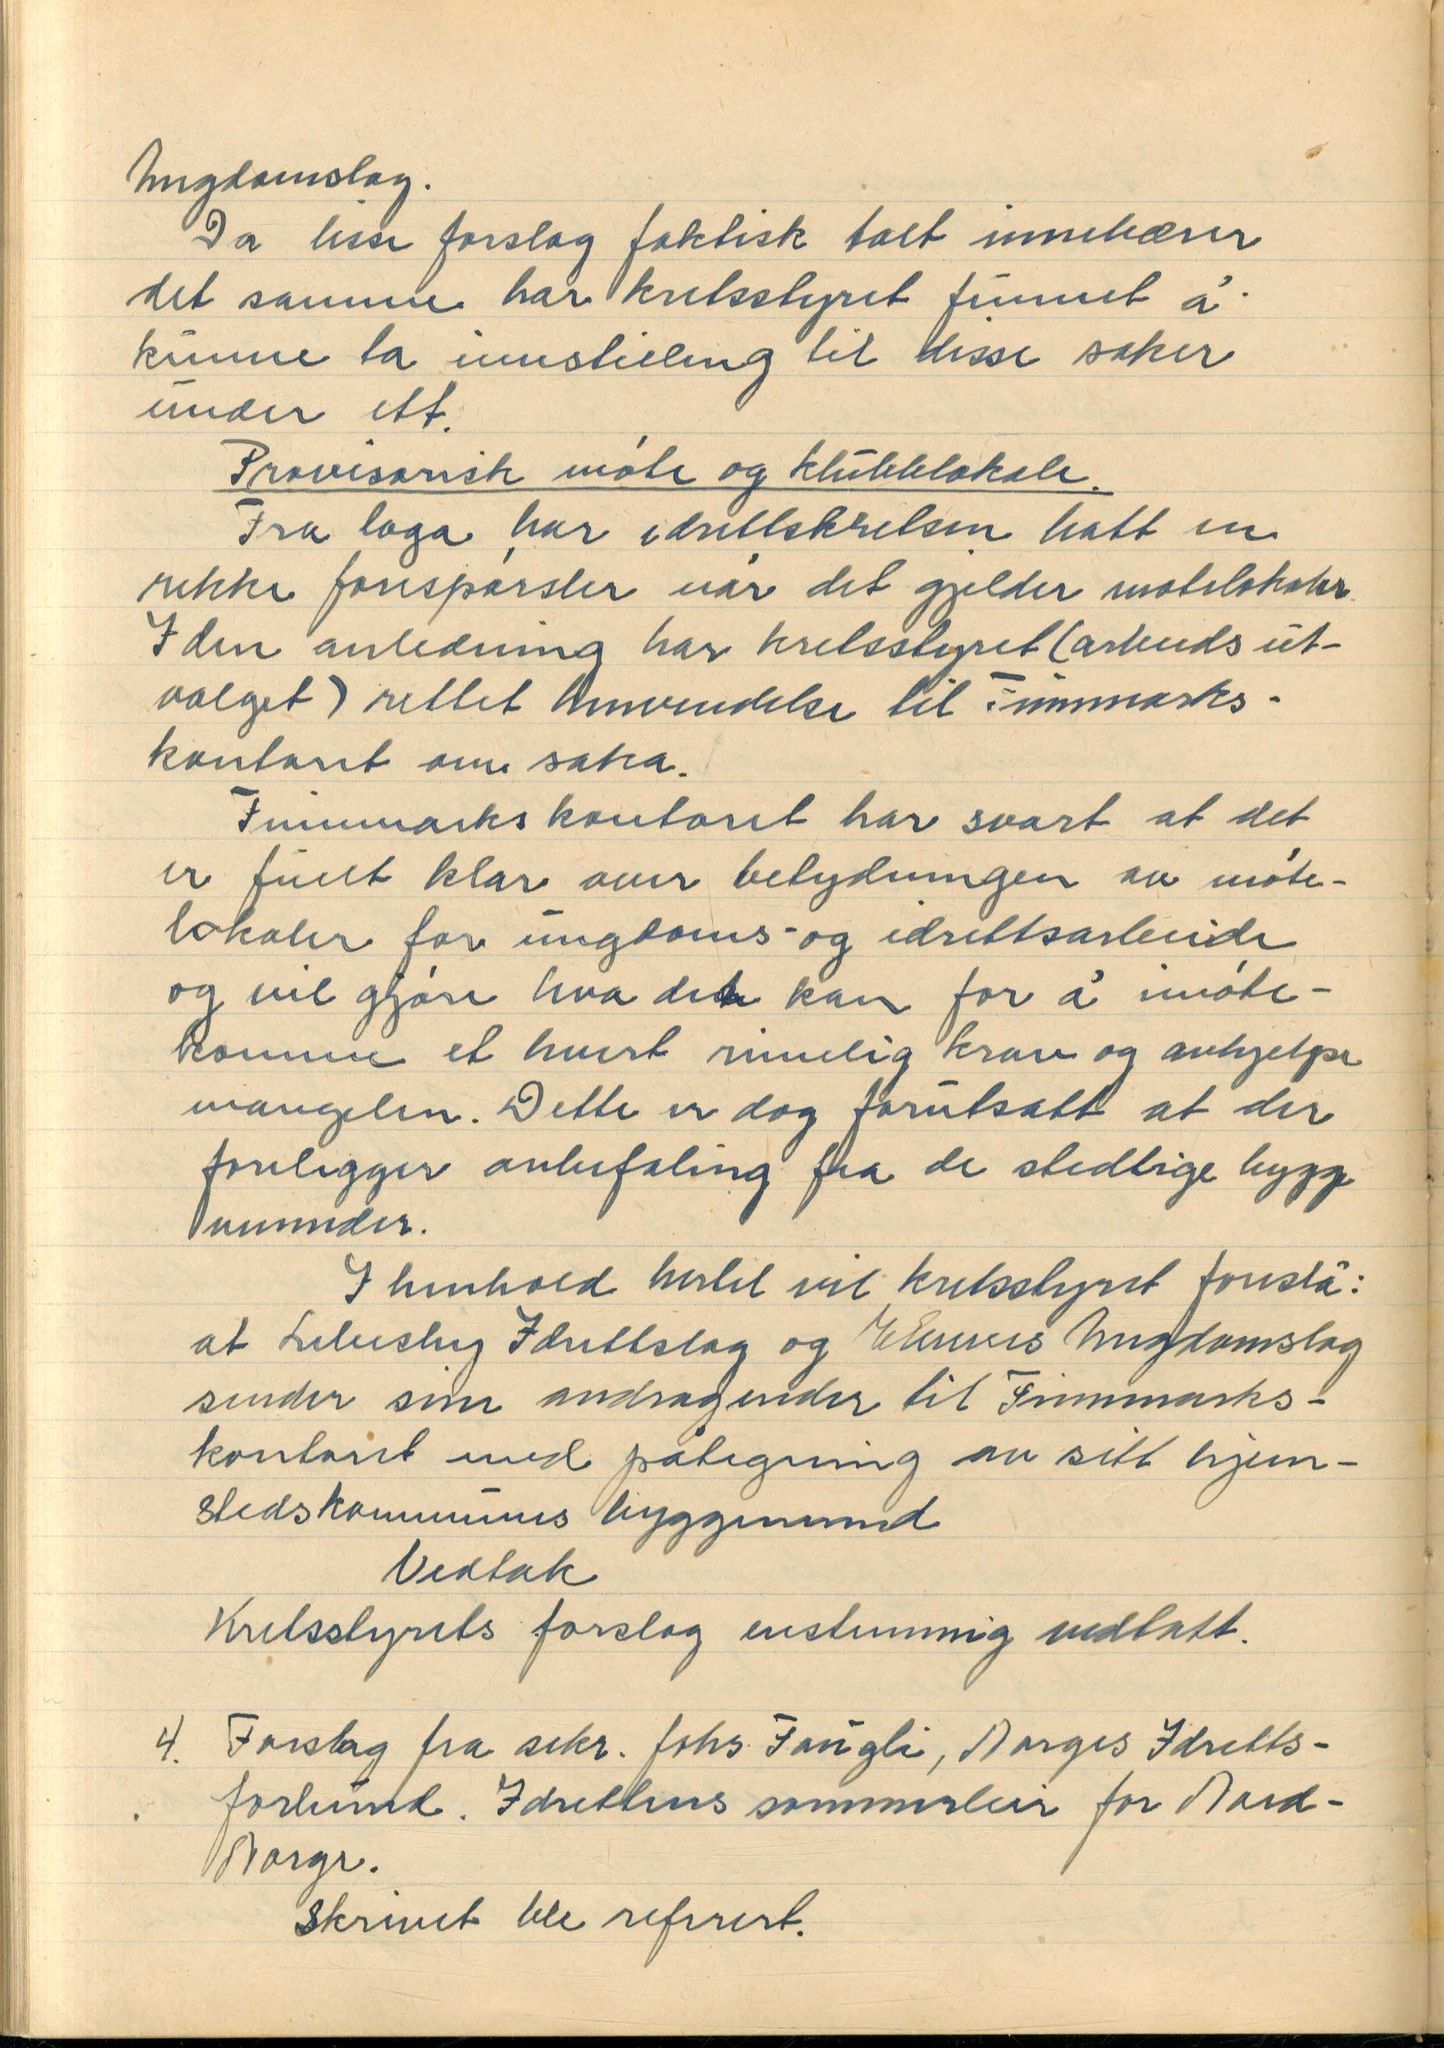 Ungdomslag.
Da disse forslag faktisk talt innebærer
det samme har kretsstyret funnet å
kunne ta innstilling til disse saker
under ett.
Provisorisk møte og klubblokale.
Fra laga har idrettskretsen hatt en
rekke forespørsler når det gjelder møtelokaler.
I den anledning har kretsstyret (arbeids ut-
valget) rettet henvendelse til Finnmarks-
kontoret om saka.
Finnmarkskontoret har svart at det
er fullt klar over betydningen av møte-
lokaler for ungdoms- og idrettsarbeide
og vil gjøre hva det kan for å imøte-
komme et hvert rimelig krav og avhjelpe
mangelen. Dette er dog forutsatt at der
foreligger anbefaling fra de stedlige bygg
nemnder.
I henhold hertil vil kretsstyret foreslå:
at Lebesby Idrettslag og Ungdomslag
sender sine andragender til Finnmarks-
kontoret med påtegning av sitt hjem-
stedskommunes byggenemnd
Vedtak
Kretsstyrets forslag enstemmig vedtatt.
4. Forslag fra sekr. Johs Faugli, Norges Idretts-
forbund. Idrettens sommerleir for Nord-
Norge.
Skrivet ble referert.